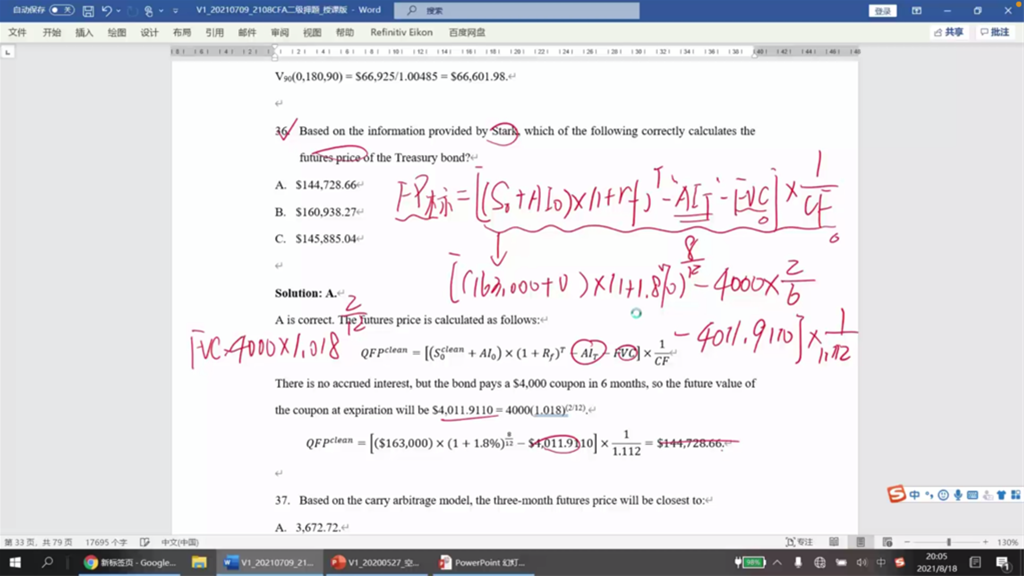 自动保存 关 V1_20210709_2108CFA二级押题_授课版 - Word 搜索 登录
文件 开始 插入 绘图 设计 布局 引用 邮件 审阅 视图 帮助 Refinitiv Eikon 百度网盘 共享 批注
V₉₀(0,180,90) = $66,925/1.00485 = $66,601.98.
36. Based on the information provided by Stark, which of the following correctly calculates the
futures price of the Treasury bond?
A. $144,728.66
FP标 = [(S₀+AI₀)×(1+rf)^T - AI_T - FVC] × 1/CF
B. $160,938.27
0 0
C. $145,885.04
[(163,000+0)×(1+1.8%)^(8/12) - 4000×2/6
Solution: A.
A is correct. The futures price is calculated as follows:
FVC 4000×1.018^(2/12)
- 4011.9110] × 1/1.112
QFP^clean = [(S₀^clean + AI₀) × (1 + R_f)^T − AI_T − FVC] × 1/CF
There is no accrued interest, but the bond pays a $4,000 coupon in 6 months, so the future value of
the coupon at expiration will be $4,011.9110 = 4000(1.018)^(2/12).
QFP^clean = [($163,000) × (1 + 1.8%)^(8/12) − $4,011.9110] × 1/1.112 = $144,728.66.
37. Based on the carry arbitrage model, the three-month futures price will be closest to:
A. 3,672.72.
中
第 33 页，共 79 页 17695 个字 中文(中国) 专注 130%
新标签页 - Google... V1_20210709_21... V1_20200527_空... PowerPoint 幻灯... 98% 中 20:05
2021/8/18